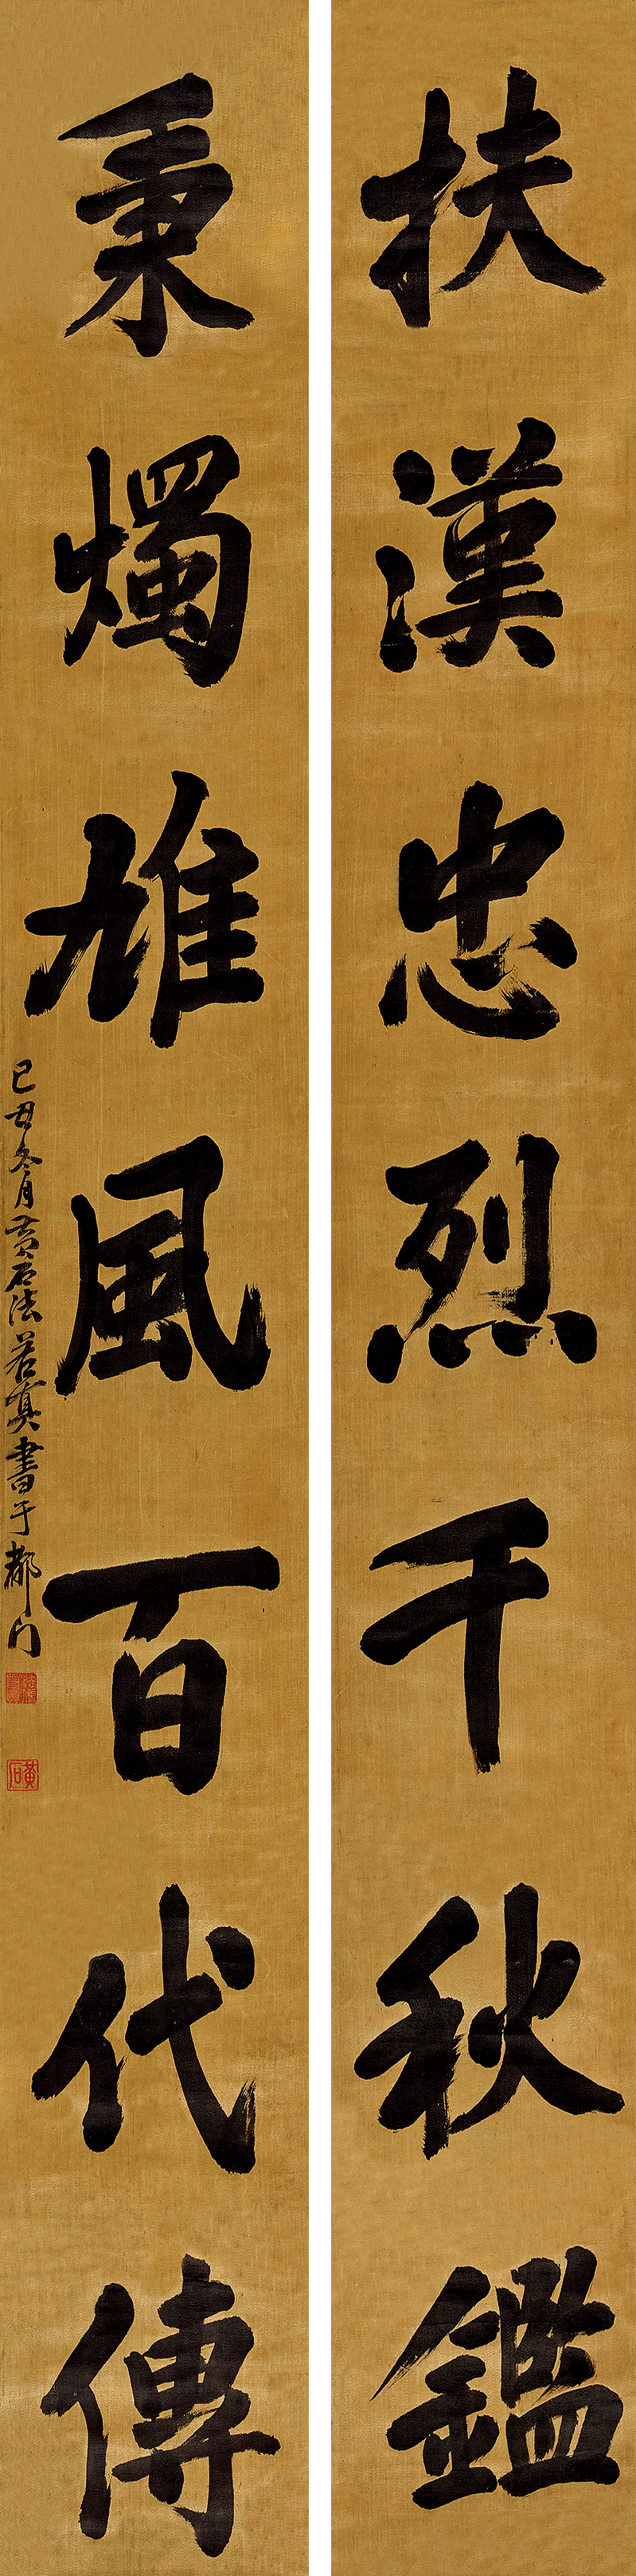 扶漢忠烈千秋鑑
秉燭雄風百代傳
己丑冬月黃石法若真書于都门
黃石